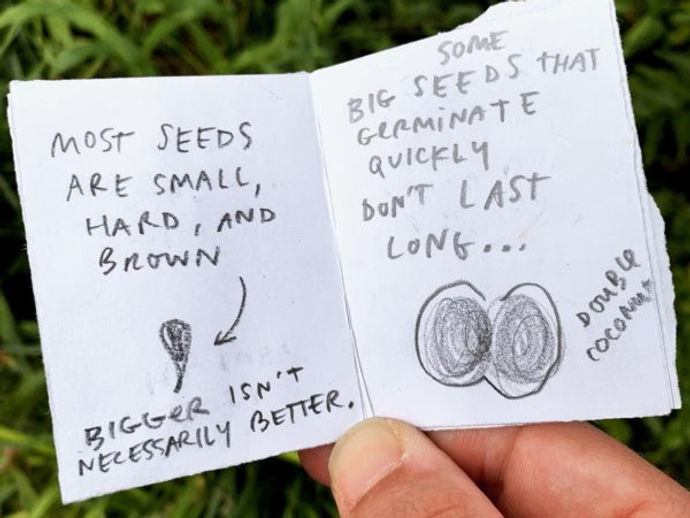 MOST SEEDS
ARE SMALL,
HARD, AND
BROWN
BIGGER ISN'T
NECESSARILY BETTER.
SOME
BIG SEEDS THAT
GERMINATE
QUICKLY
DON'T LAST
LONG...
DOUBLE
COCONUT